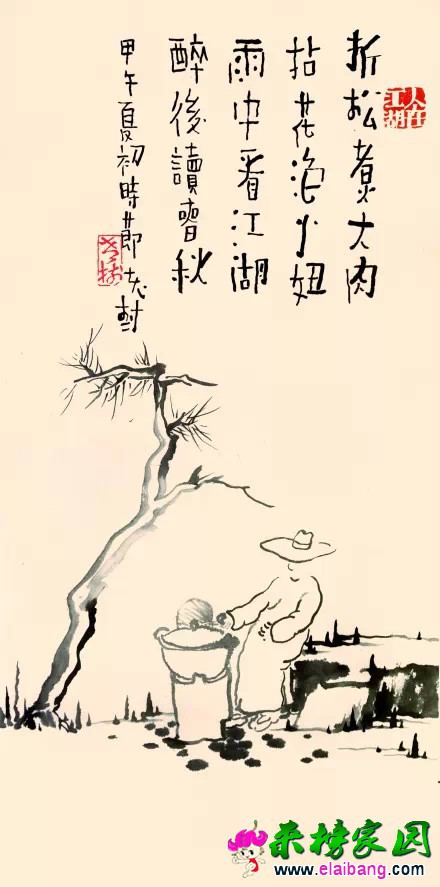 人在江湖
折松煮大肉
拈花泡小妞
雨中看江湖
醉後讀春秋
甲午夏初時節 老樹
老树
来榜家园
www.elaibang.com